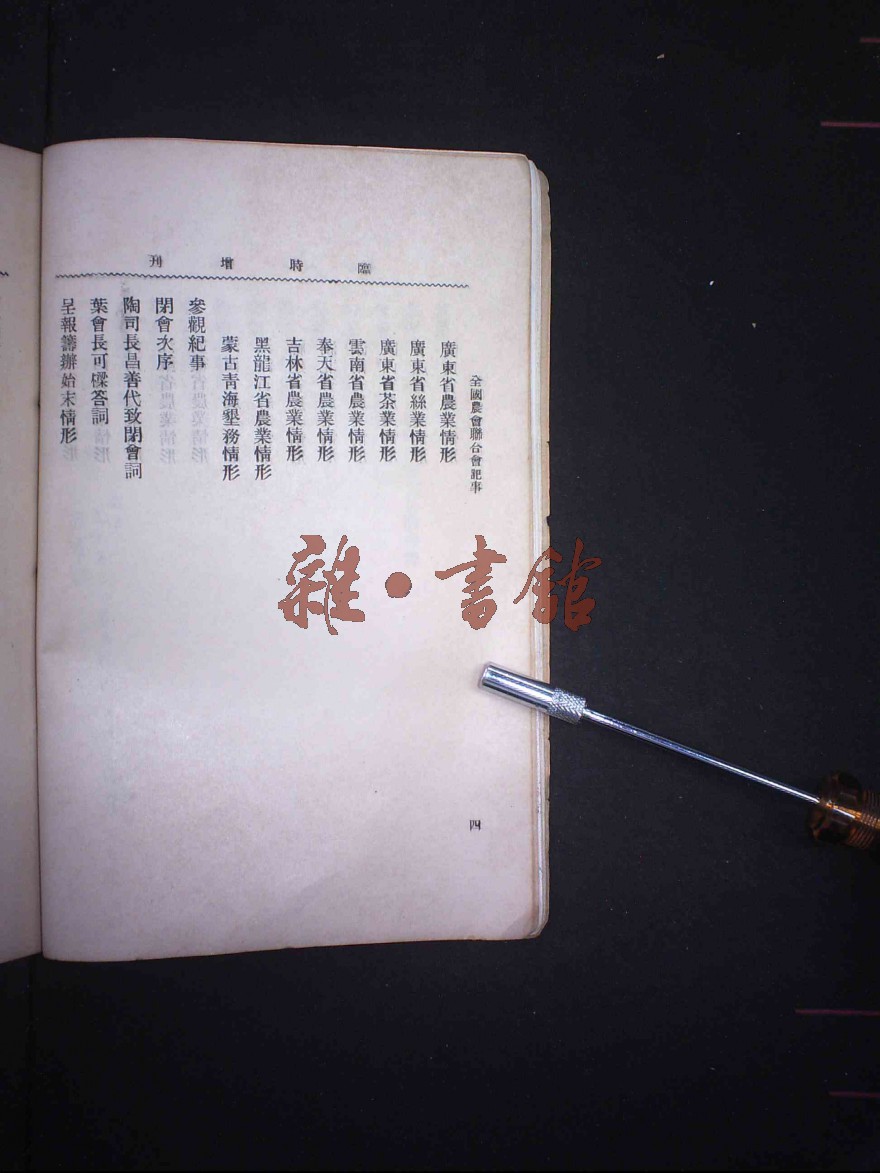 臨時增刊
全國農會聯合會記事
廣東省農業情形
廣東省絲業情形
廣東省茶業情形
雲南省農業情形
奉天省農業情形
吉林省農業情形
黑龍江省農業情形
蒙古青海墾務情形
參觀紀事
閉會次序
陶司長昌善代致閉會詞
葉會長可樑答詞
呈報籌辦始末情形
四
雜·書館